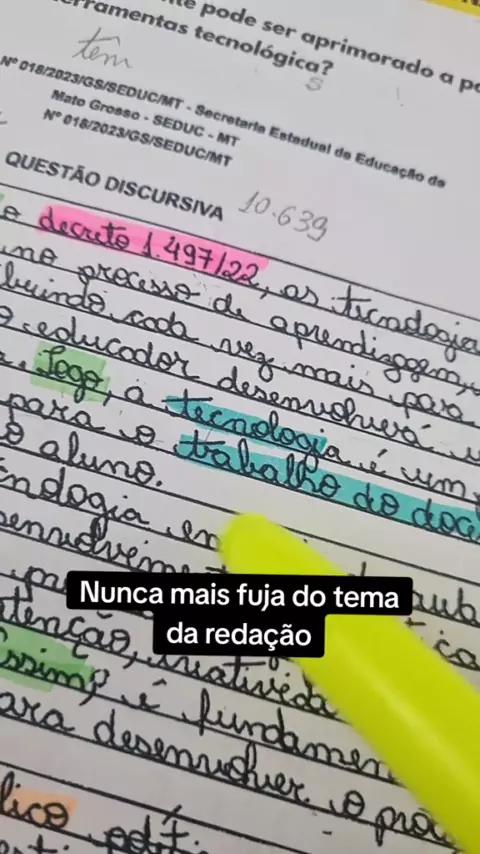 te pode ser aprimorado a po
ferramentas tecnológica?
têm
s
Nº 018/2023/GS/SEDUC/MT - Secretaria Estadual de Educação de
Mato Grosso - SEDUC - MT
Nº 018/2023/GS/SEDUC/MT
QUESTÃO DISCURSIVA 10.639
o decreto 1.497/22, as tecnologia
no processo de aprendizagem,
buindo cada vez mais para
o educador desenvolverá
Logo, a tecnologia é um
para o trabalho do doce
o aluno.
cnologia en
senvolvime
Nunca mais fuja do tema
da redação
tenção, criativida
ssim, é fundamen
ara desenvolver o pro
lico